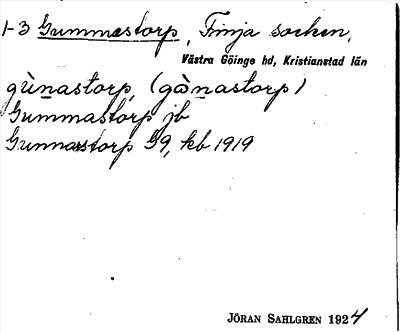 1-3 Gummastorp, Finja socken,
Västra Göinge hd, Kristianstad län
gùnastorp, (gònastorp)
Gummastorp jb
Gunnarstorp 59, kb 1919
JÖRAN SAHLGREN 1924